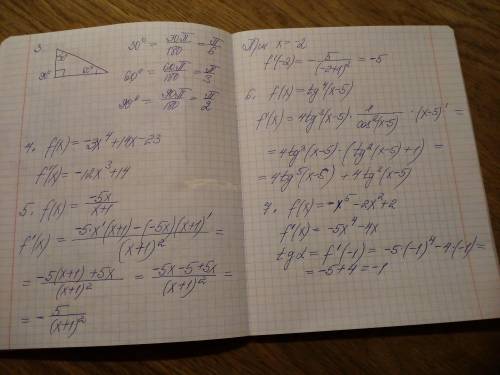 3.
30° 90° 60°
30° = 30π/180 = π/6
60° = 60π/180 = π/3
90° = 90π/180 = π/2
4. f(x) = -3x⁴+14x-23
f'(x) = -12x³+14
5. f(x) = -5x/(x+1)
f'(x) = (-5·x'(x+1)-(-5x)(x+1)')/(x+1)² =
= (-5(x+1)+5x)/(x+1)² = (-5x-5+5x)/(x+1)² =
= -5/(x+1)²
При x = -2
f'(-2) = -5/(-2+1)² = -5
6. f(x) = tg⁴(x-5)
f'(x) = 4tg³(x-5) · 1/cos²(x-5) · (x-5)' =
= 4tg³(x-5) · (tg²(x-5)+1) =
= 4tg⁵(x-5) + 4tg³(x-5)
7. f(x) = -x⁵-2x²+2
f'(x) = -5x⁴-4x
tgα = f'(-1) = -5·(-1)⁴-4·(-1) =
= -5+4 = -1